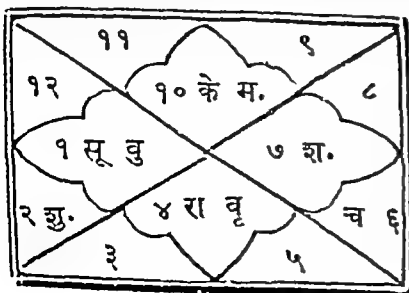 ११ ९
१२ १० के म. ८
१ सू वु ७ श.
२ शु. ४ रा वृ च ६
३ ५